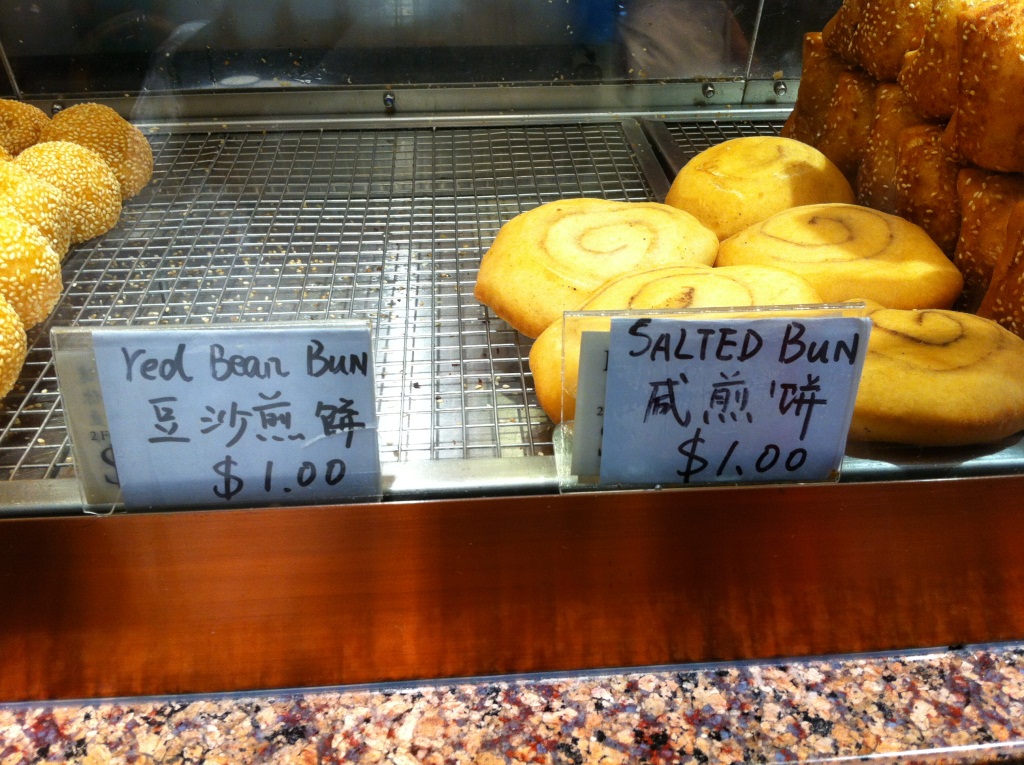 red Bean BUN
豆沙煎餅
$1.00
SALTED BUN
咸煎饼
$1.00